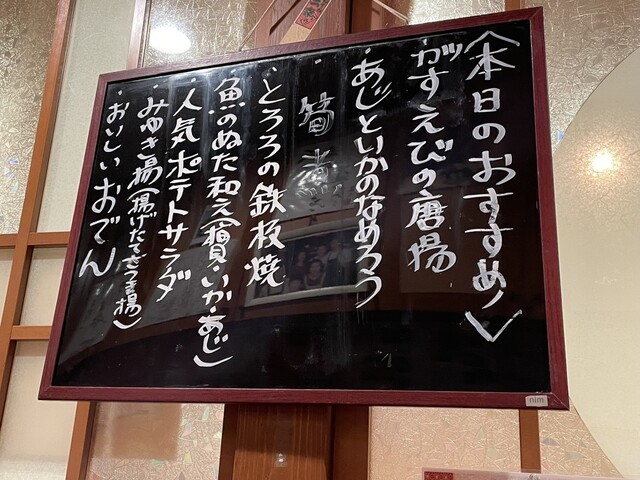 〈本日のおすすめ〉
・がすえびの唐揚
・あじといかのなめろう
・筍
・とろろの鉄板焼
・魚のぬた和え(貝・いか・あじ)
・人気ポテトサラダ
・みゆき揚(揚げたてさつま揚)
・おいしいおでん
nim